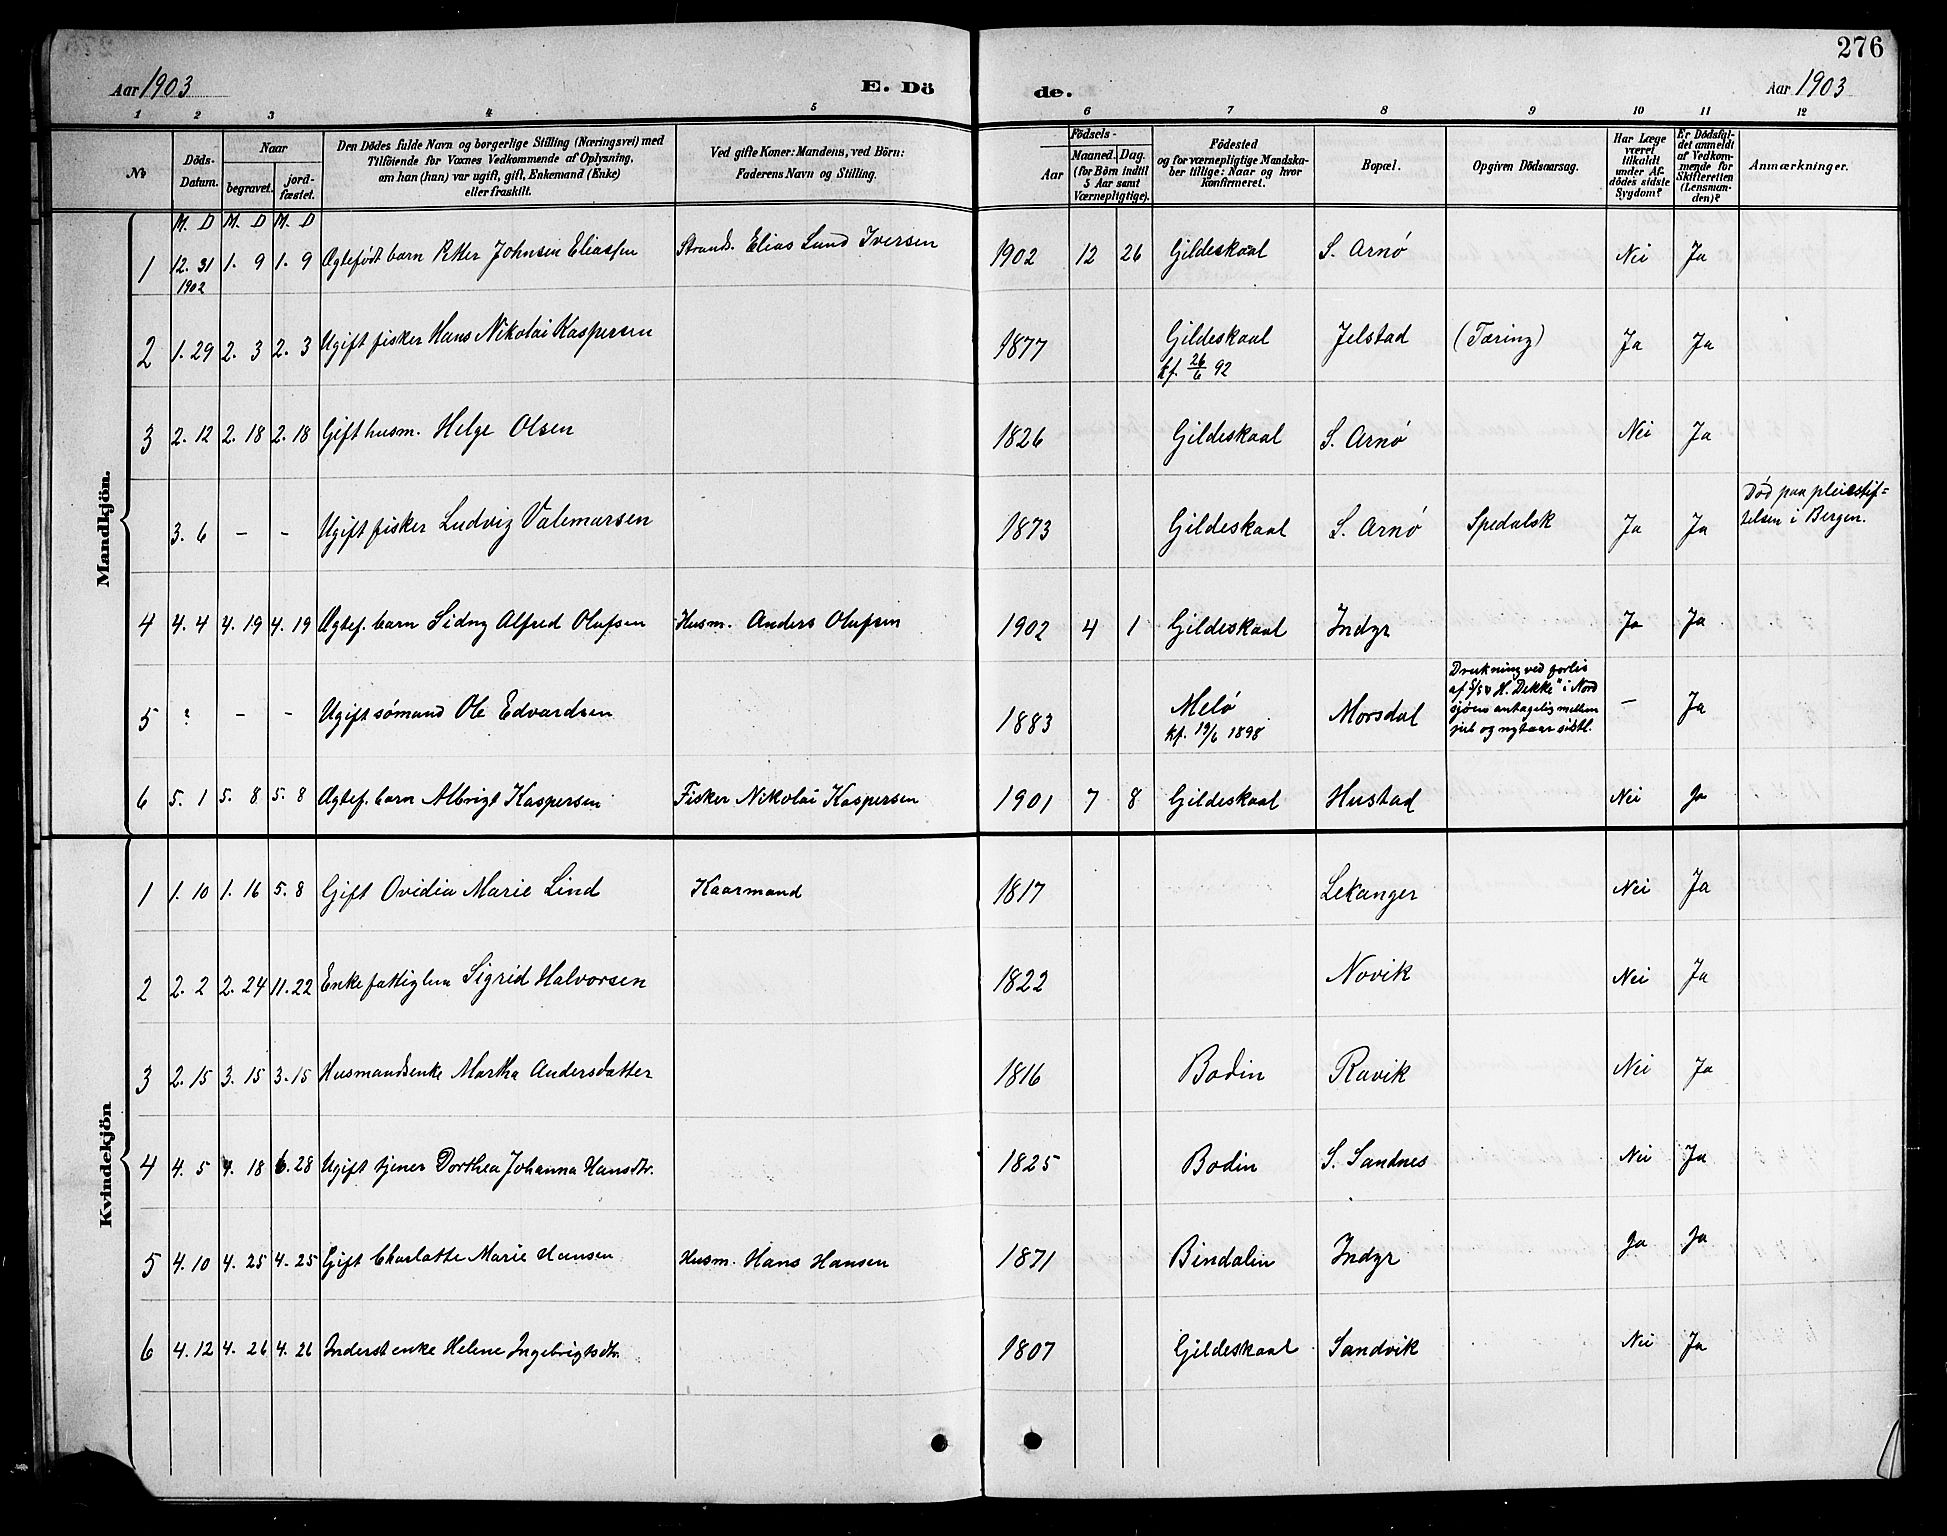 276
Aar 1903 E. Dö de. Aar 1903
1 2 3 4 5 6 7 8 9 10 11 12
No
Döds-Datum.
Naar
begravet. jord-fæstet.
Den Dödes fulde Navn og borgerlige Stilling (Næringsvei) med
Tilföiende for Voxnes Vedkommende af Oplysning,
om han (hun) var ugift, gift, Enkemand (Enke)
eller fraskilt.
Ved gifte Koner: Mandens, ved Börn:
Faderens Navn og Stilling.
Födsels-
Aar
Maaned. Dag.
(for Börn indtil
5 Aar samt
Værnepligtige).
Födested
og for værnepligtige Mandska-
ber tillige: Naar og hvor
konfirmeret.
Bopæl.
Opgiven Dödsaarsag.
Har Læge
været
tilkaldt
under Af-
dödes sidste
Sygdom?
Er Dödsfal-
det anmeldt
af Vedkom-
mende for
Skifteretten
(Lensman-
den)?
Anmærkninger.
M. D M. D M. D
Mandkjön.
1 12. 31 1. 9 1. 9 Ægtefødt barn Peter Johnsen Eliassen Strands. Elias Lund Iversen 1902 12 26 Gildeskaal S. Arnø Nei Ja
1902
2 1. 29 2. 3 2. 3 Ugift fisker Hans Nikolai Kaspersen 1877 Gildeskaal Jelstad (Tæring) Ja Ja
kf. 26/6 92
3 2. 12 2. 18 2. 18 Gift husm. Helge Olsen 1826 Gildeskaal S. Arnø Nei Ja
3. 6 – – Ugift fisker Ludvig Valemarsen 1873 Gildeskaal S. Arnø Spedalsk Ja Ja Død paa pleiestif=
telsen i Bergen.
4 4. 4 4. 19 4. 19 Ægtef. barn Sidny Alfred Olufsen Husm. Anders Olufsen 1902 4 1 Gildeskaal Indyr Ja Ja
5 ? – – Ugift sømand Ole Edvardsen 1883 Melø Morsdal Drukning ved forlis
af S/S "H. Dekke" i Nord
sjøen antagelig mellem
jul og nytaar sidstl. – Ja
kf. 19/6 1898
6 5. 1 5. 8 5. 8 Ægtef. barn Albrigt Kaspersen Fisker Nikolai Kaspersen 1901 7 8 Gildeskaal Hustad Nei Ja
Kvindekjön
1 1. 10 1. 16 5. 8 Gift Ovidia Marie Lind Kaarmand 1817 Lekanger Nei Ja
2 2. 2 2. 24 11. 22 Enke fattiglem Sigrid Halvorsen 1822 Novik Nei Ja
3 2. 15 3. 15 3. 15 Husmandsenke Martha Andersdatter 1816 Bodin Ravik Nei Ja
4 4. 5 4. 18 6. 28 Ugift tjener Dorthea Johanna Hansdtr. 1825 Bodin S. Sandnes Nei Ja
5 4. 10 4. 25 4. 25 Gift Charlotte Marie Hansen Husm. Hans Hansen 1871 Bindalin Indyr Ja Ja
6 4. 12 4. 26 4. 26 Inderst enke Helene Ingebrigtsdtr. 1807 Gildeskaal Sandvik Nei Ja